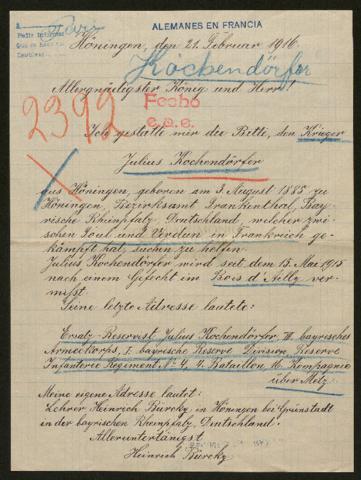 ALEMANES EN FRANCIA
Höningen, den 21. Februar 1916.
Kochendörfer
Allergnädigster König und Herr!
2392
Fechó
c.a.e.
Ich gestatte mir die Bitte, den Krieger
Julius Kochendörfer
aus Höningen, geboren am 3. August 1885 zu
Höningen, Bezirksamt Frankenthal, Bay-
rische Rheinpfalz, Deutschland, welcher zwi-
schen Toul und Verdun in Frankreich ge-
kämpft hat, suchen zu helfen.
Julius Kochendörfer wird seit dem 15. Mai 1915
nach einem Gefecht im Bois d'Ailly ver-
misst.
Seine letzte Adresse lautete:
Ersatz-Reservist Julius Kochendörfer, III. bayrisches
Armeekorps, 5. bayrische Reserve Division, Reserve
Infanterie Regiment, No 4, 4. Bataillon 16. Kompagnie
über Metz.
Meine eigene Adresse lautet:
Lehrer Heinrich Bürcky in Höningen bei Grünstadt
in der bayrischen Rheinpfalz, Deutschland.
Alleruntertänigst
Heinrich Bürcky